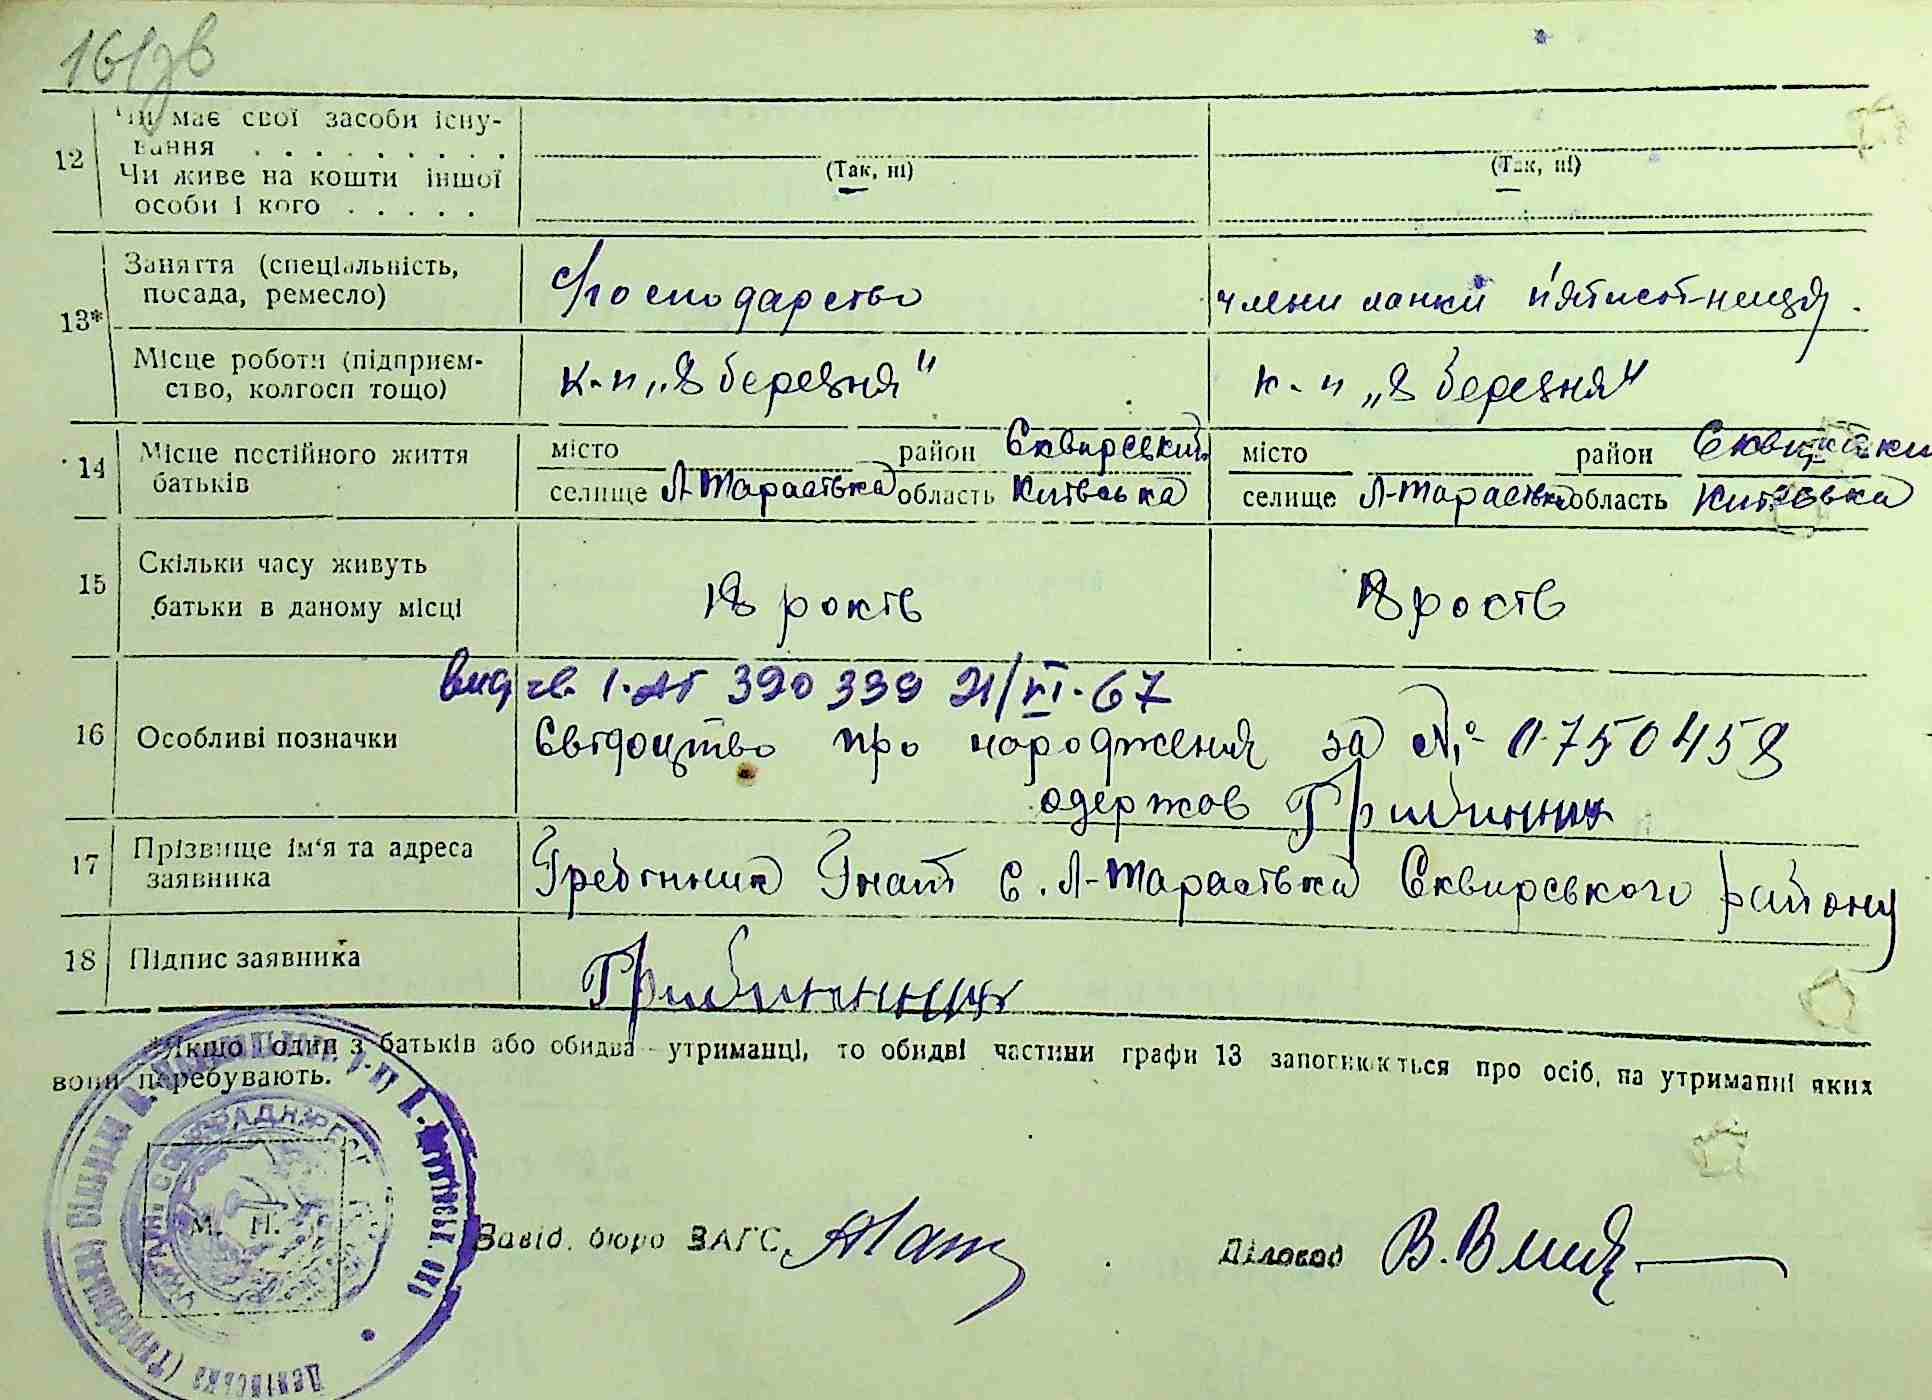 161зв
12 Чи має свої засоби існу-
вання . . . . . . . . .
Чи живе на кошти іншої
особи і кого . . . . .
(Так, ні)
(Так, ні)
13* Заняття (спеціальність,
посада, ремесло)
господарство
члени ланки п'ятисотниця.
Місце роботи (підприєм-
ство, колгосп тощо)
к-п „8 березня"
к-п „8 березня"
14 Місце постійного життя
батьків
місто район Сквирський
селище Л-Тарасівка область Київська
місто район Сквирський
селище Л-Тарасівка область Київська
15 Скільки часу живуть
батьки в даному місці
18 років
18 років
16 Особливі позначки
вид св. 390339 21/VI-67
Свідоцтво про народження за № 0750458
одержав Грибинник
17 Прізвище ім'я та адреса
заявника
Гребінник Гнат с. Л-Тарасівка Сквирського району
18 Підпис заявника
Грибинник
*Якщо один з батьків або обидва—утриманці, то обидві частини графи 13 заповнюються про осіб, на утриманні яких
вони перебувають.
М. П.
Завід. бюро ЗАГС
Діловод